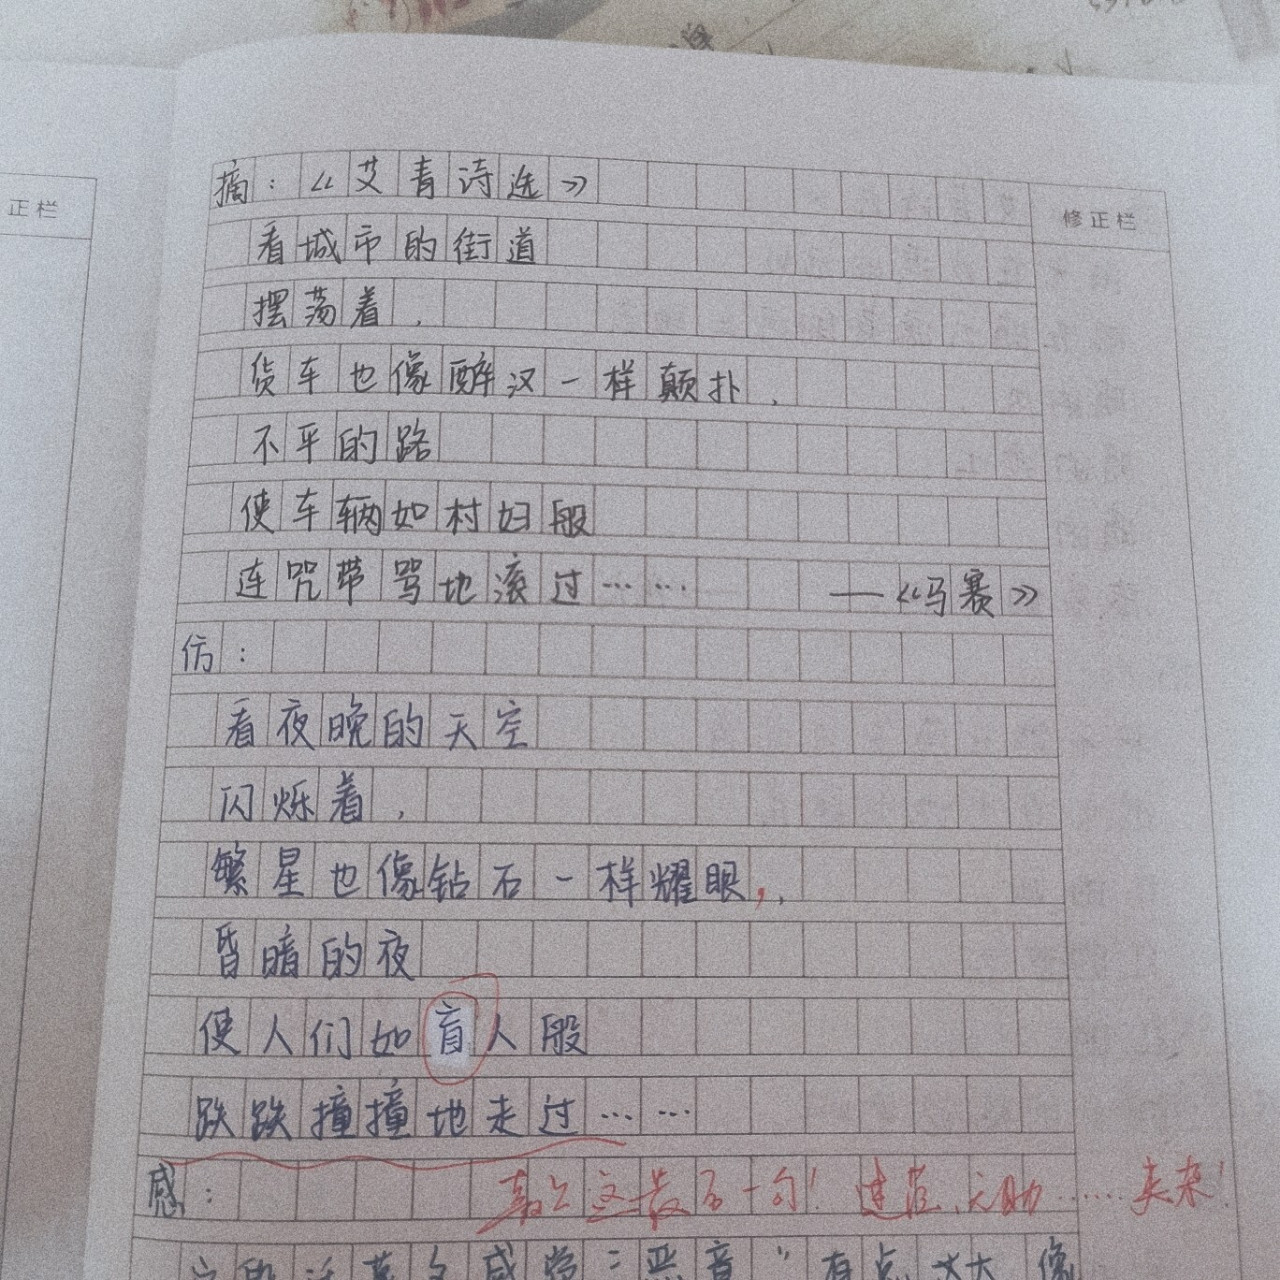 正栏
修正栏
摘：《艾青诗选》
看城市的街道
摆荡着，
货车也像醉汉一样颠扑，
不平的路
使车辆如村妇般
连咒带骂地滚过……——《马赛》
仿：
看夜晚的天空
闪烁着，
繁星也像钻石一样耀眼，，
昏暗的夜
使人们如盲人般
跌跌撞撞地走过……
感：
这最后一句！迷茫、无助……未来！